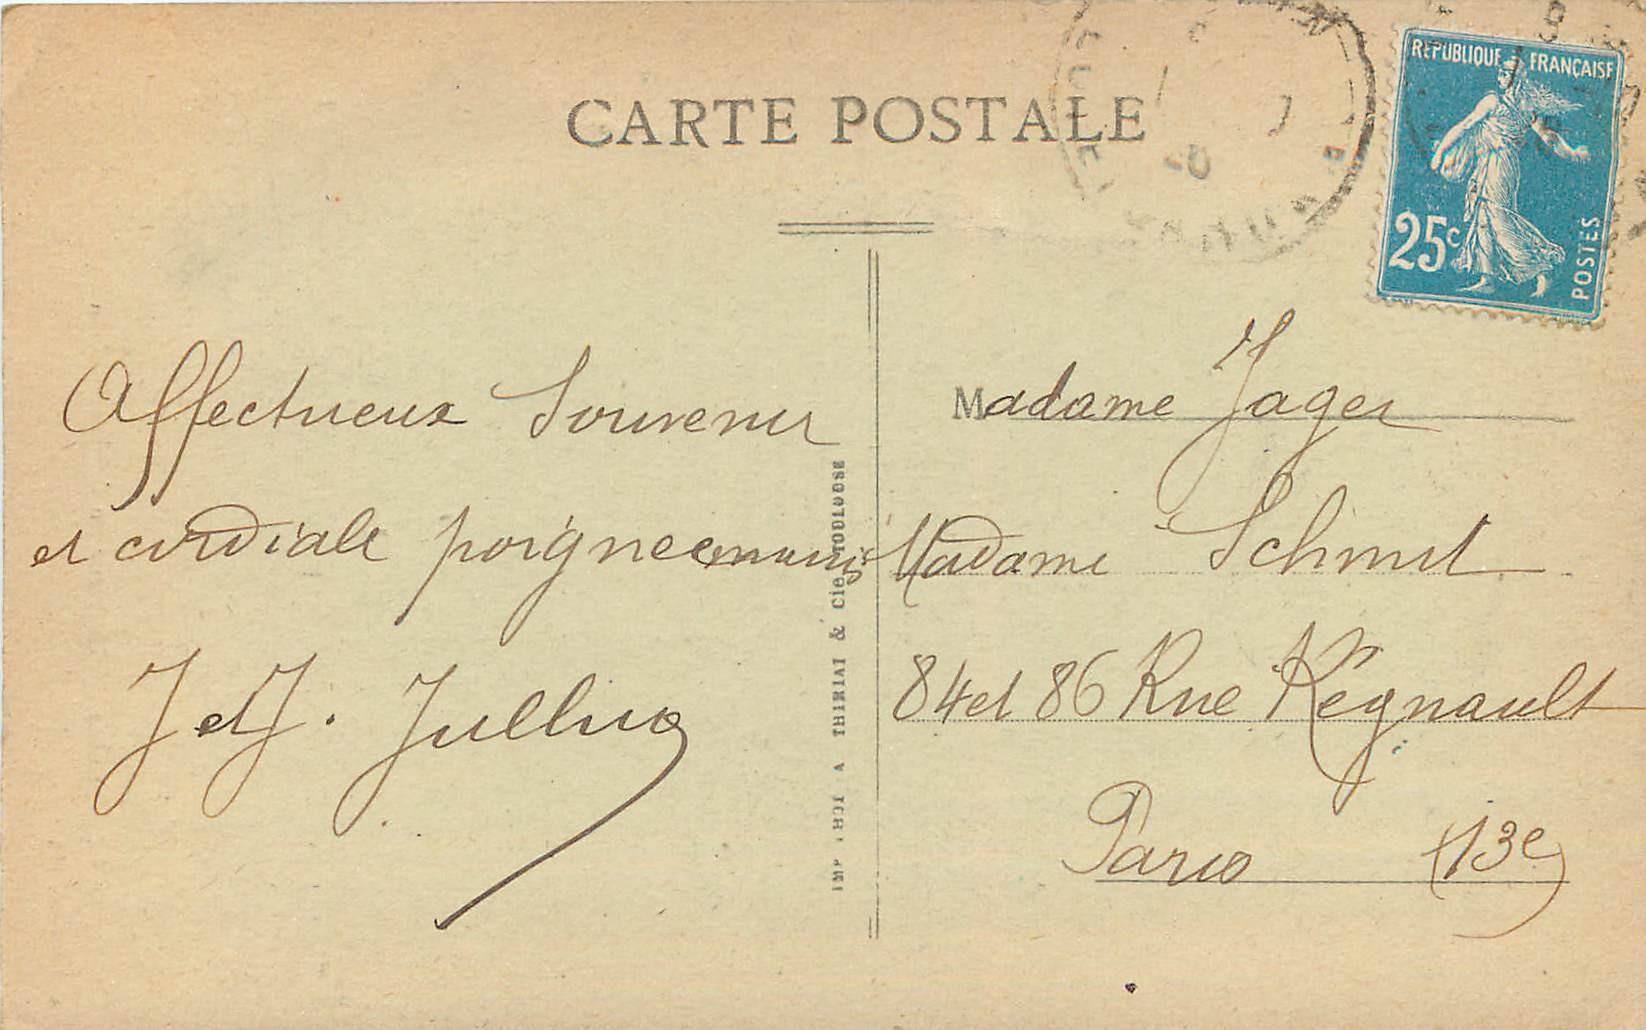 CARTE POSTALE
REPUBLIQUE FRANÇAISE
25c
POSTES
Affectueux Souvenir
et cordiale poignee mains
J et J. Jullien
IMP PHOT A THIRIAT & Cie TOULOUSE
Madame Jager
Madame Schmit
84 et 86 Rue Régnault
Paris (13e)